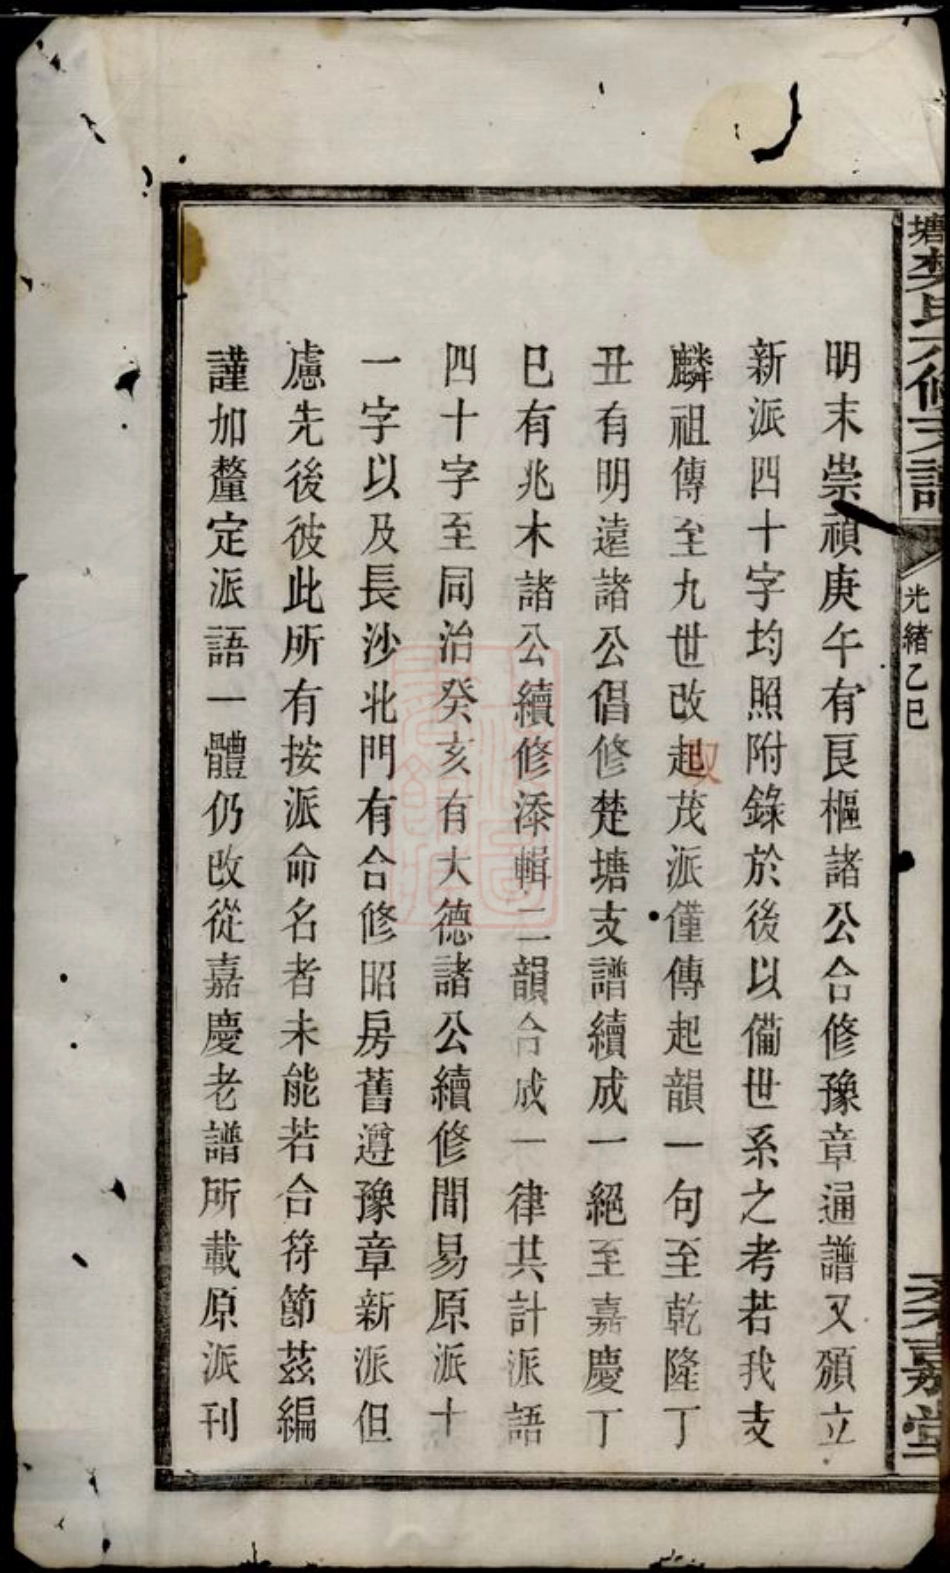 塘婁氏六修支譜
光緒乙巳
敦嘉堂
明末崇禎庚午有艮樞諸公合修豫章通譜又頒立
新派四十字均照附錄於後以備世系之考若我支
麟祖傳至九世改起茂派僅傳起韻一句至乾隆丁
丑有明遠諸公倡修楚塘支譜續成一絕至嘉慶丁
巳有兆木諸公續修添輯二韻合成一律共計派語
四十字至同治癸亥有大德諸公續修間易原派十
一字以及長沙北門有合修昭房舊遵豫章新派但
慮先後彼此所有按派命名者未能若合符節茲編
謹加釐定派語一體仍改從嘉慶老譜所載原派刊